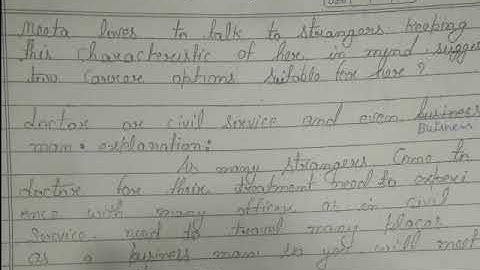 Meeta loves to talk to strangers. Keeping
this characteristic of her in mind sugges
two carrere options suitable for here ?
doctor or civil service and even business
Business
man. explanation:
As many strangers come to
doctor for their treatment need to experi
ence with many officer as in civil
service need to travel many places
as a business man so you will meet